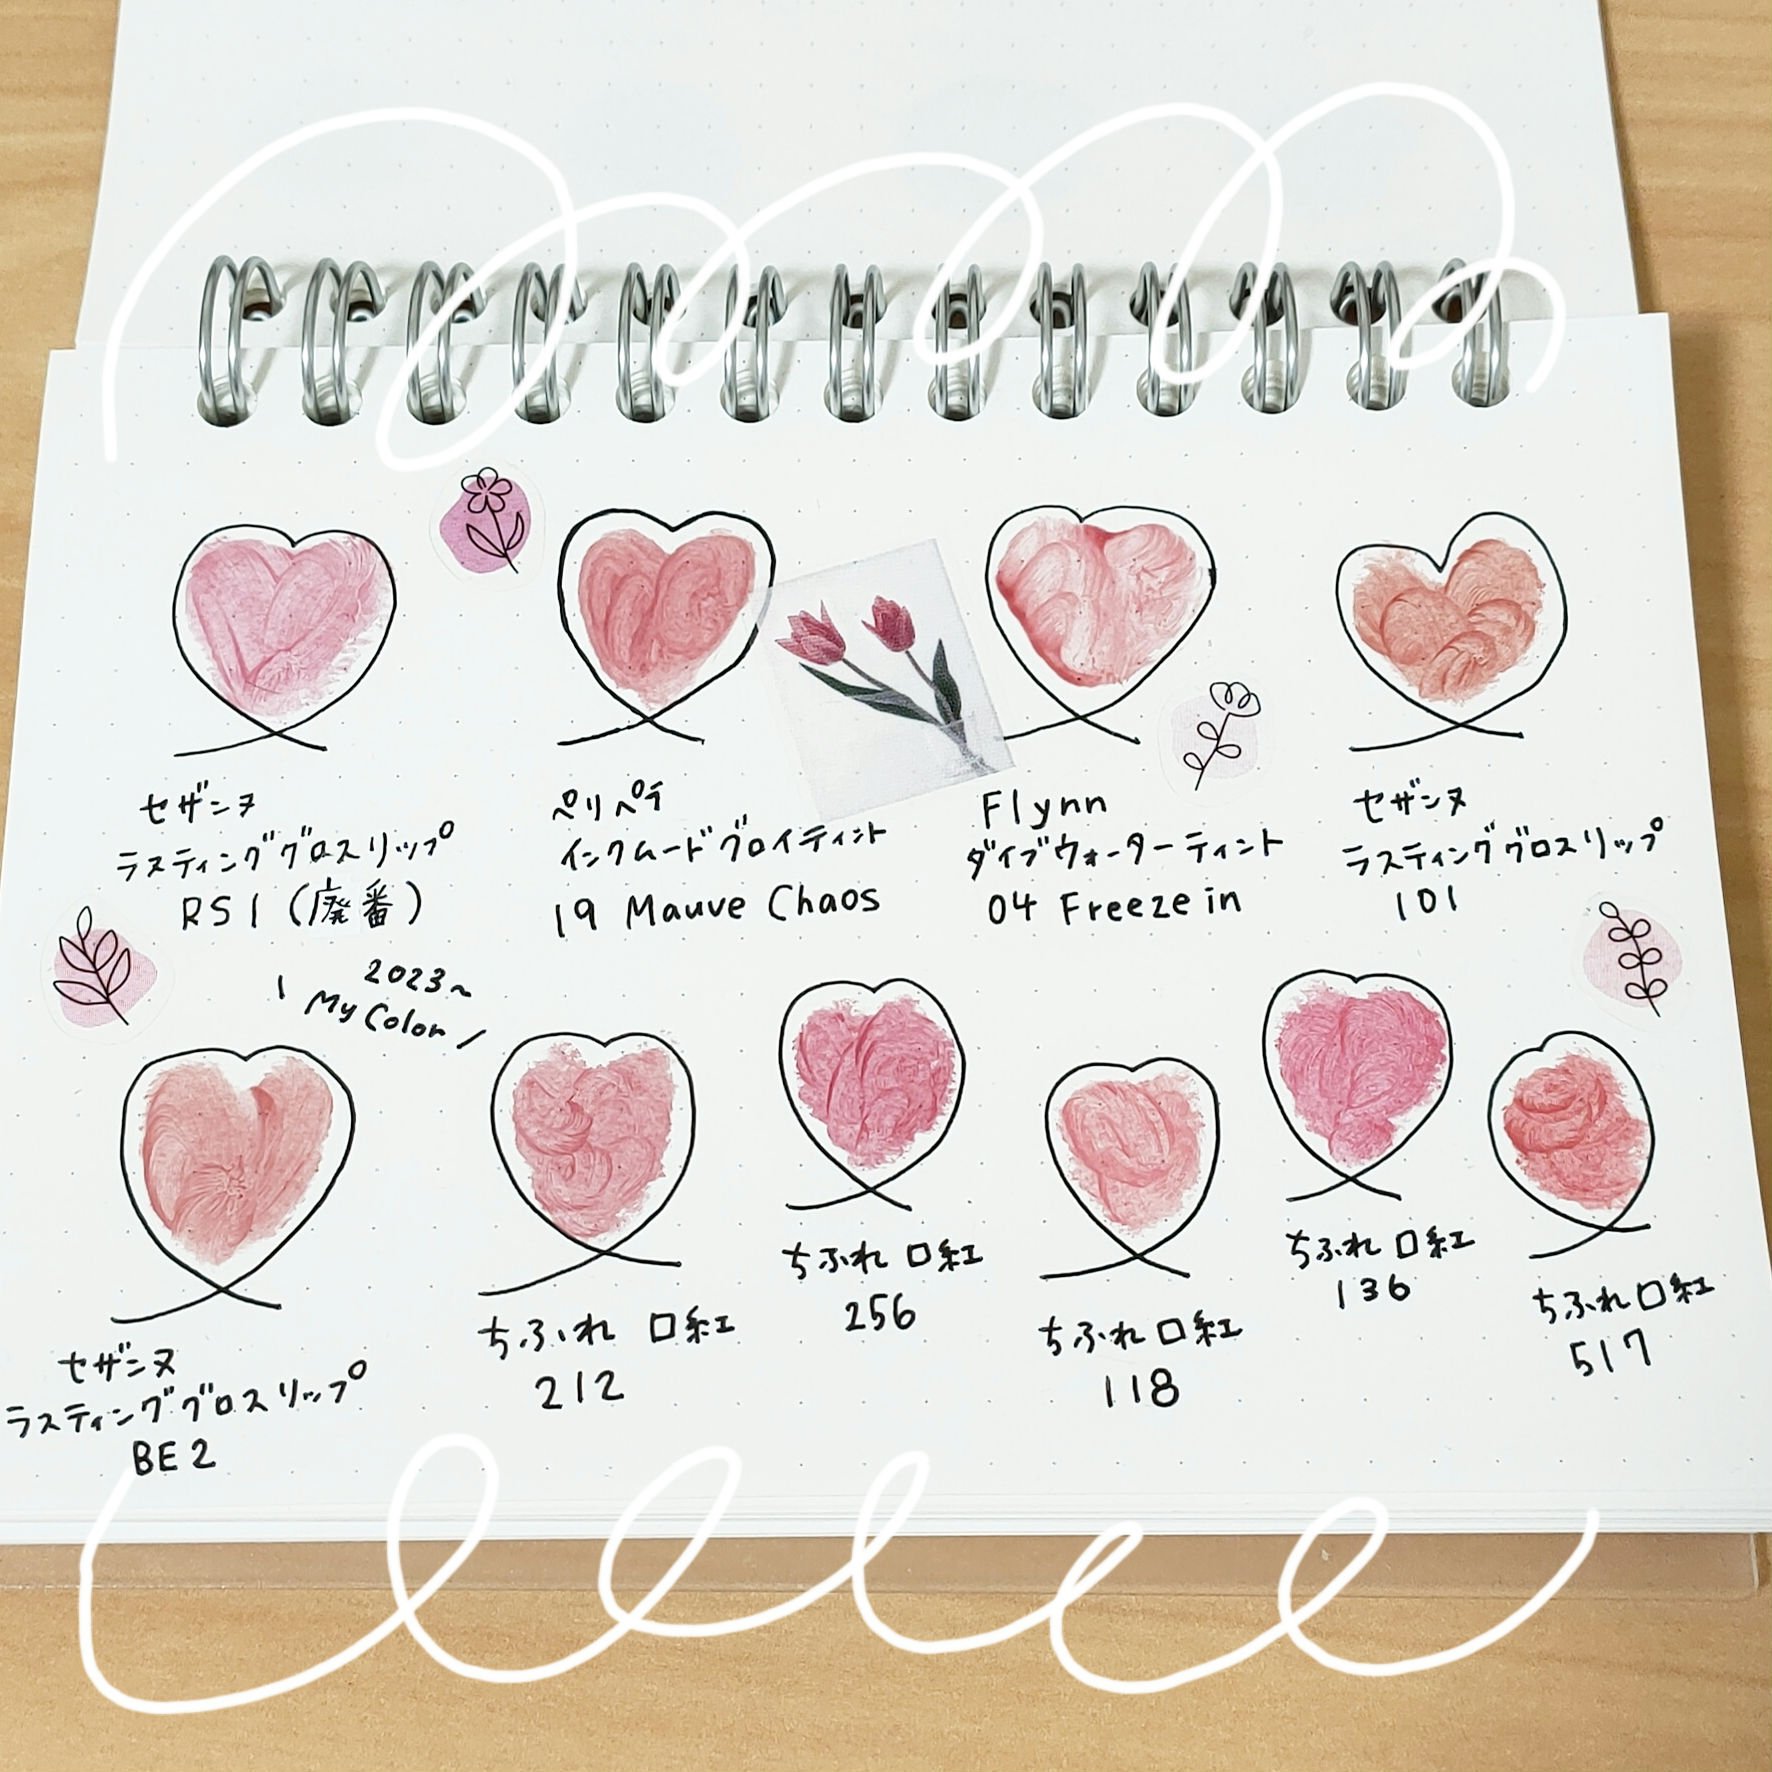 セザンヌ
ラスティンググロスリップ
RS1(廃番)
ペリペラ
インクムードグロイティント
19 Mauve Chaos
Flynn
ダイブウォーターティント
04 Freeze in
セザンヌ
ラスティンググロスリップ
101
2023~
\ My Color /
セザンヌ
ラスティンググロスリップ
BE2
ちふれ 口紅
212
ちふれ 口紅
256
ちふれ口紅
118
ちふれ 口紅
136
ちふれ口紅
517